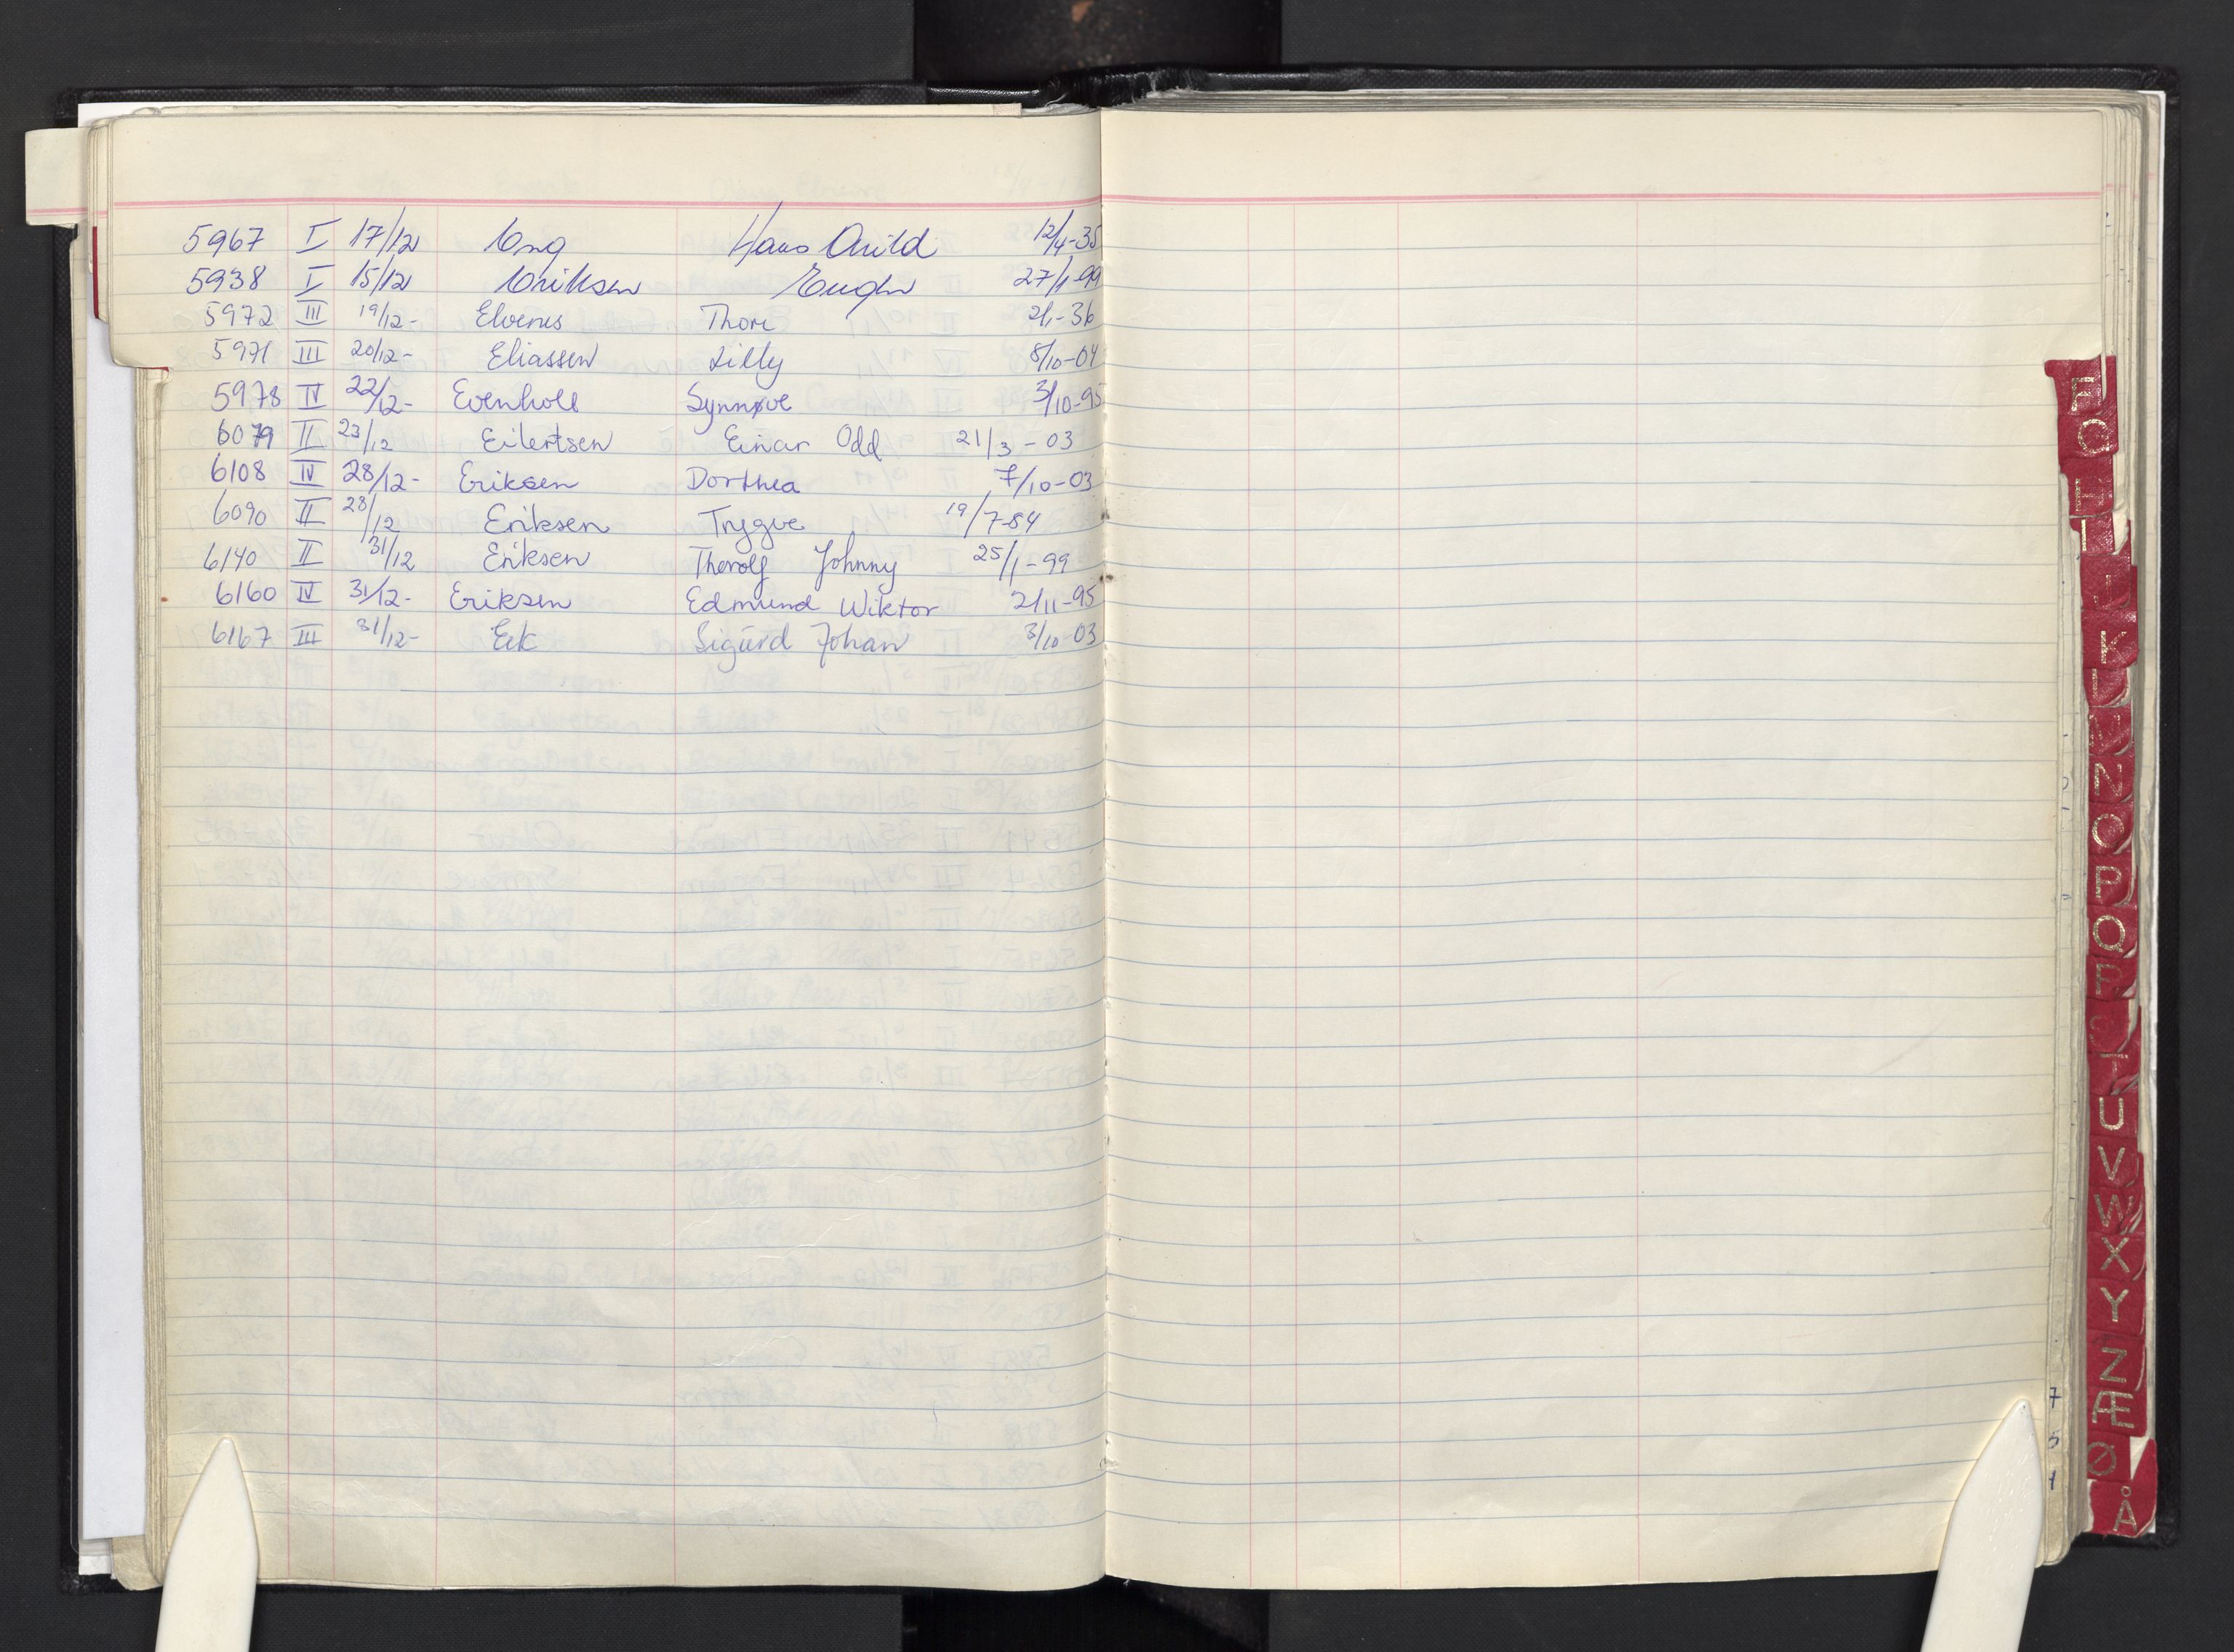 5967 I 17/12 Eng Hans Arild 12/4-35
5938 I 15/12 Eriksen Eugen 27/1-99
5972 III 19/12- Elvenes Thore 2/1-36
5971 III 20/12- Eliassen Lilly 8/10-04
5978 IV 22/12- Evenholl Synnøve 3/10-95
6079 II 23/12 Eilertsen Einar Odd 21/3-03
6108 IV 28/12- Eriksen Dorthea 7/10-03
6090 II 28/12 Eriksen Trygve 19/7-84
6140 II 31/12 Eriksen Thorolf Johnny 25/1-99
6160 IV 31/12- Eriksen Edmund Wiktor 2/11-95
6167 III 31/12- Eek Sigurd Johan 3/10-03
F
G
H
I
J
K
L
M
N
O
P
Q
R
S
T
U
V
W
X
Y
Z
Æ
Ø
Å